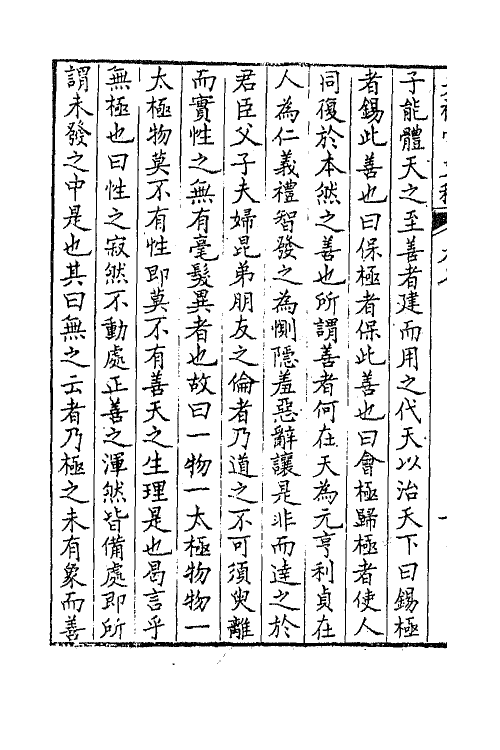 子能體天之至善者建而用之代天以治天下曰錫極
者錫此善也曰保極者保此善也曰會極歸極者使人
同復於本然之善也所謂善者何在天為元亨利貞在
人為仁義禮智發之為惻隱羞惡辭讓是非而達之於
君臣父子夫婦昆弟朋友之倫者乃道之不可須臾離
而實性之無有毫髮異者也故曰一物一太極物物一
太極物莫不有性即莫不有善天之生理是也曷言乎
無極也曰性之寂然不動處正善之渾然皆備處即所
謂未發之中是也其曰無之云者乃極之未有象而善